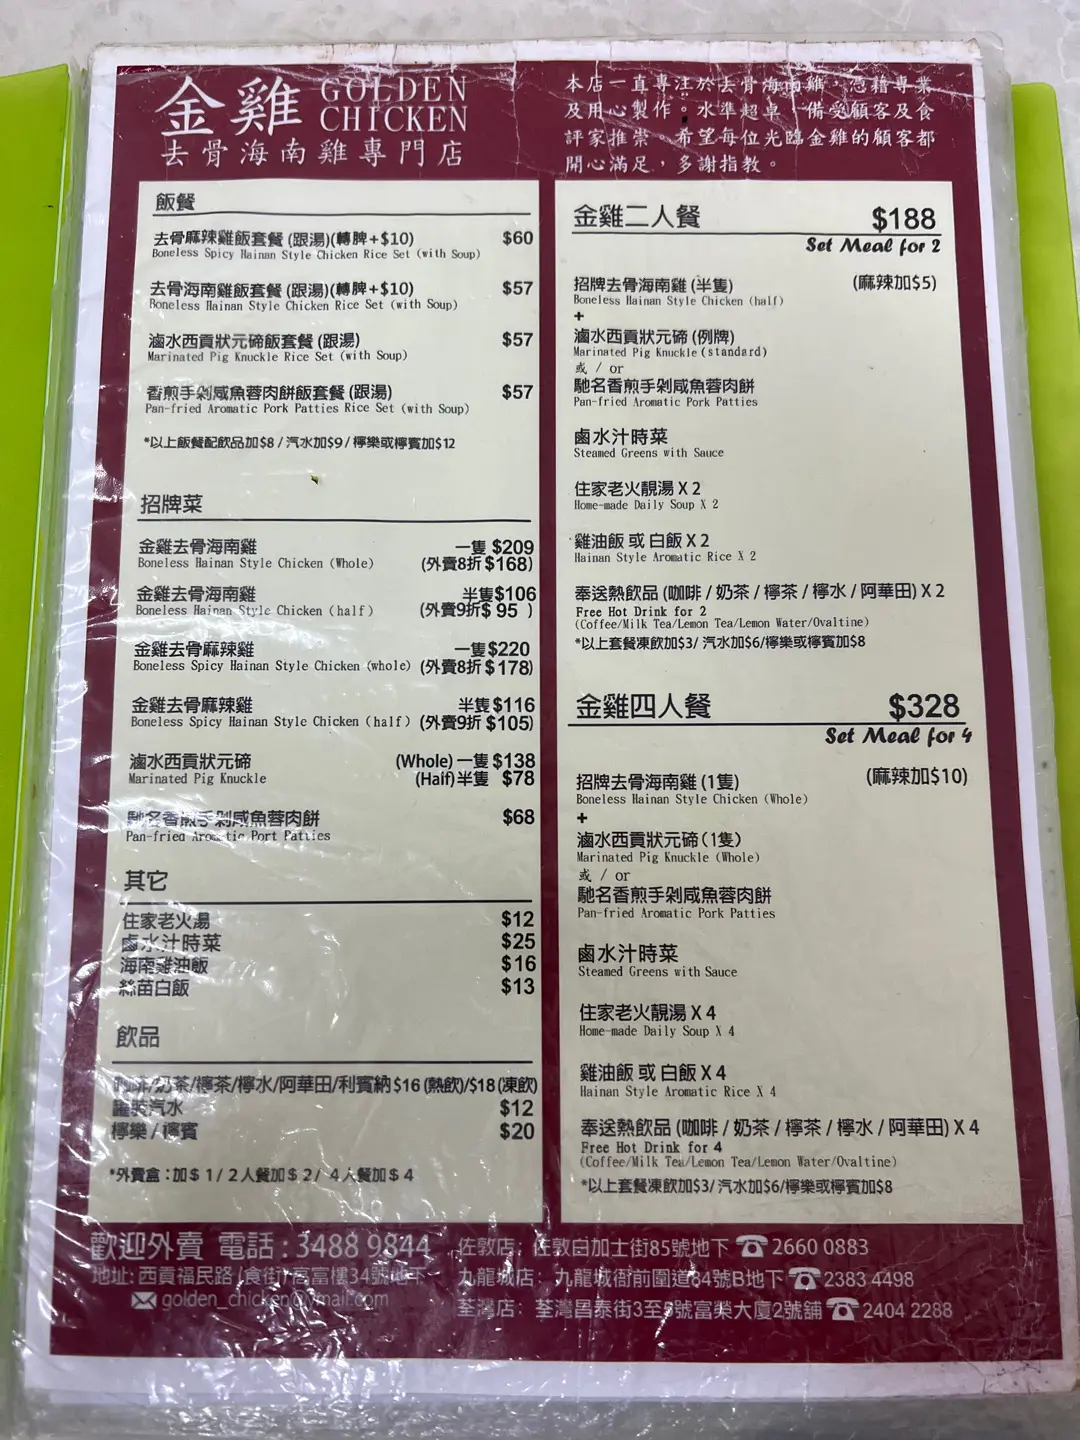 金雞 GOLDEN CHICKEN
去骨海南雞專門店
本店一直專注於去骨海南雞,憑藉專業
及用心製作。水準超卓,備受顧客及食
評家推崇。希望每位光臨金雞的顧客都
開心滿足,多謝指教。
飯餐
去骨麻辣雞飯套餐 (跟湯)(轉脾+$10) $60
Boneless Spicy Hainan Style Chicken Rice Set (with Soup)
去骨海南雞飯套餐 (跟湯)(轉脾+$10) $57
Boneless Hainan Style Chicken Rice Set (with Soup)
滷水西貢狀元碲飯套餐 (跟湯) $57
Marinated Pig Knuckle Rice Set (with Soup)
香煎手剁咸魚蓉肉餅飯套餐 (跟湯) $57
Pan-fried Aromatic Pork Patties Rice Set (with Soup)
*以上飯餐配飲品加$8 / 汽水加$9 / 檸樂或檸賓加$12
招牌菜
金雞去骨海南雞 一隻 $209
Boneless Hainan Style Chicken (Whole) (外賣8折 $168)
金雞去骨海南雞 半隻 $106
Boneless Hainan Style Chicken (half) (外賣9折 $ 95 )
金雞去骨麻辣雞 一隻 $220
Boneless Spicy Hainan Style Chicken (whole) (外賣8折 $178)
金雞去骨麻辣雞 半隻 $116
Boneless Spicy Hainan Style Chicken (half) (外賣9折 $105)
滷水西貢狀元碲 (Whole) 一隻 $138
Marinated Pig Knuckle (Half) 半隻 $78
馳名香煎手剁咸魚蓉肉餅 $68
Pan-fried Aromatic Port Patties
其它
住家老火湯 $12
鹵水汁時菜 $25
海南雞油飯 $16
絲苗白飯 $13
飲品
咖啡/奶茶/檸茶/檸水/阿華田/利賓納 $16 (熱飲)/$18 (凍飲)
罐裝汽水 $12
檸樂 / 檸賓 $20
*外賣盒:加$ 1 / 2人餐加$ 2/ 4人餐加$ 4
金雞二人餐 $188
Set Meal for 2
招牌去骨海南雞 (半隻) (麻辣加$5)
Boneless Hainan Style Chicken (half)
+
滷水西貢狀元碲 (例牌)
Marinated Pig Knuckle (standard)
或 / or
馳名香煎手剁咸魚蓉肉餅
Pan-fried Aromatic Pork Patties
鹵水汁時菜
Steamed Greens with Sauce
住家老火靚湯 X 2
Home-made Daily Soup X 2
雞油飯 或 白飯 X 2
Hainan Style Aromatic Rice X 2
奉送熱飲品 (咖啡 / 奶茶 / 檸茶 / 檸水 / 阿華田) X 2
Free Hot Drink for 2
(Coffee/Milk Tea/Lemon Tea/Lemon Water/Ovaltine)
*以上套餐凍飲加$3/ 汽水加$6/檸樂或檸賓加$8
金雞四人餐 $328
Set Meal for 4
招牌去骨海南雞 (1隻) (麻辣加$10)
Boneless Hainan Style Chicken (Whole)
+
滷水西貢狀元碲 (1隻)
Marinated Pig Knuckle (Whole)
或 / or
馳名香煎手剁咸魚蓉肉餅
Pan-fried Aromatic Pork Patties
鹵水汁時菜
Steamed Greens with Sauce
住家老火靚湯 X 4
Home-made Daily Soup X 4
雞油飯 或 白飯 X 4
Hainan Style Aromatic Rice X 4
奉送熱飲品 (咖啡 / 奶茶 / 檸茶 / 檸水 / 阿華田) X 4
Free Hot Drink for 4
(Coffee/Milk Tea/Lemon Tea/Lemon Water/Ovaltine)
*以上套餐凍飲加$3/ 汽水加$6/檸樂或檸賓加$8
歡迎外賣 電話 : 3488 9844
地址: 西貢福民路 /食街/ 高富樓34號地下
golden_chicken@ymail.com
佐敦店: 佐敦白加士街85號地下 ☎ 2660 0883
九龍城店: 九龍城衙前圍道84號B地下 ☎ 2383 4498
荃灣店: 荃灣昌泰街3至5號富榮大廈2號舖 ☎ 2404 2288